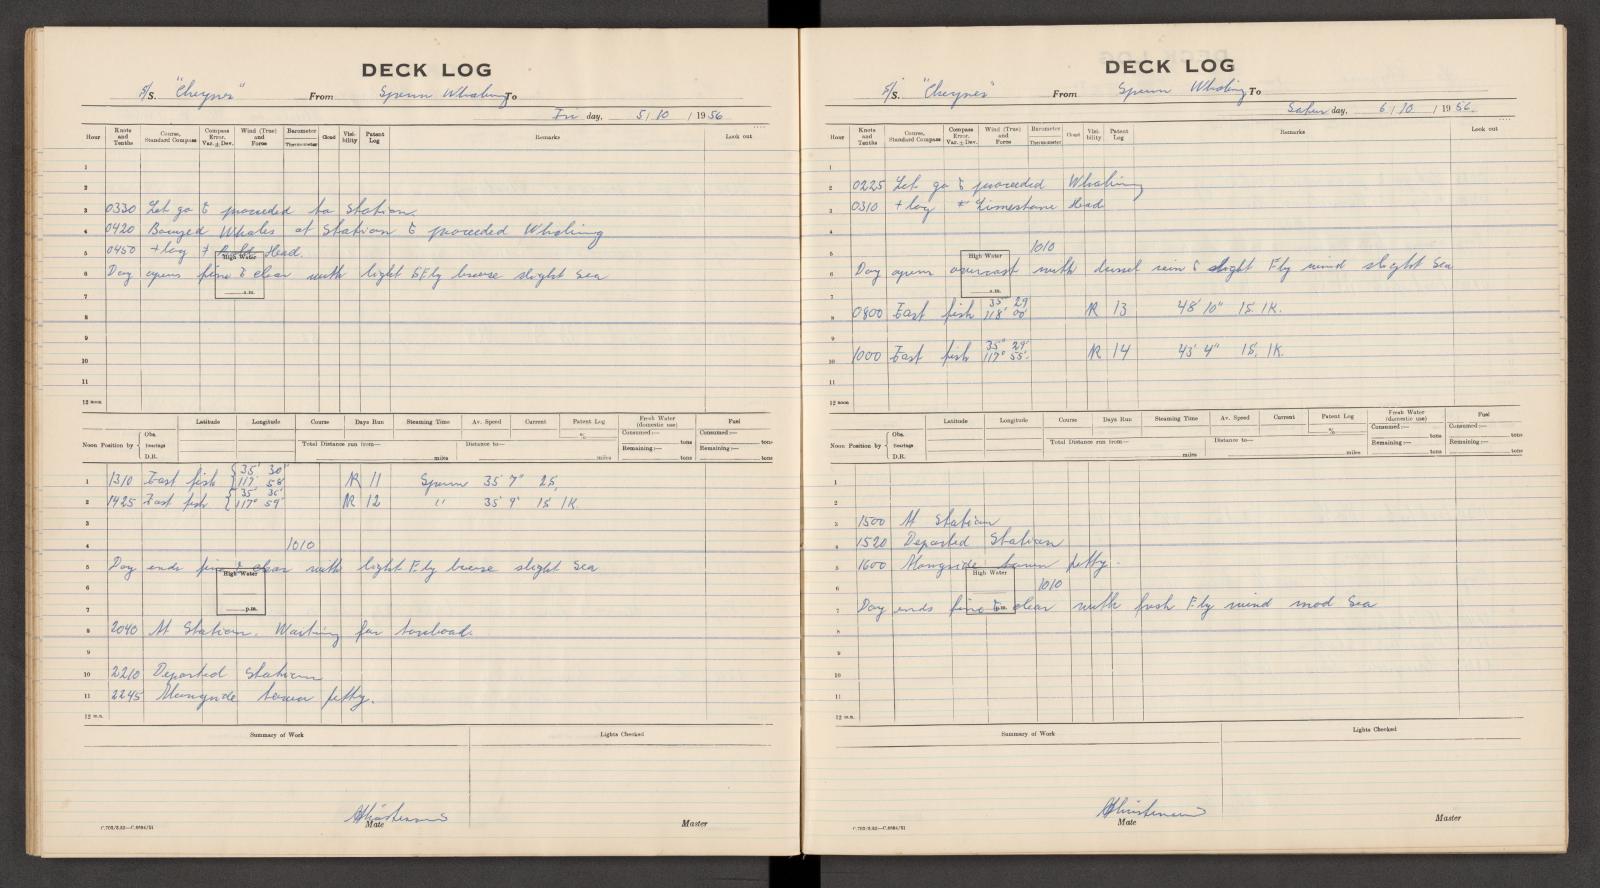 DECK LOG
S/S. "Cheynes" From Sperm Whaling To
Fri day, 5/10/1956
Hour Knots and Tenths Course, Standard Compass Compass Error, Var. ± Dev. Wind (True) and Force Barometer Thermometer Cloud Visibility Patent Log Remarks Look out
1
2
3 0330 Let go & proceeded to Station.
4 0420 Bouyed Whales at Station & proceeded Whaling
5 0450 + log Head.
High Water
6 Day opens fine & clear with light E'Ely breeze slight sea
a.m.
7
8
9
10
11
12 noon
Latitude Longitude Course Days Run Steaming Time Av. Speed Current Patent Log Fresh Water (domestic use) Fuel
% Consumed:— tons Consumed:— tons
Noon Position by { Obs. Bearings D.R. Total Distance run from— miles Distance to— miles Remaining:— tons Remaining:— tons
1 1310 Fast fish { 35° 30' 117° 58' N 11 Sperm 35' 7" 2S.
2 1425 Fast fish { 35° 36' 117° 59' N 12 " 35' 9" 1S 1K.
3
4 1010
5 Day ends fine & clear with light E'ly breeze slight sea
High Water
6
p.m.
7
8 2040 At Station. Waiting for towboat.
9
10 2210 Departed Station
11 2245 Alongside town jetty.
12 m.n.
Summary of Work Lights Checked
Mate Master
C.702/3.52—C.8694/51
DECK LOG
S/S. "Cheynes" From Sperm Whaling To
Satur day, 6/10/1956
Hour Knots and Tenths Course, Standard Compass Compass Error, Var. ± Dev. Wind (True) and Force Barometer Thermometer Cloud Visibility Patent Log Remarks Look out
1
2 0225 Let go & proceeded Whaling
3 0310 + log * Limestone Head
4
5 1010
High Water
6 Day opens overcast with rain & slight E'ly wind slight sea
a.m.
7
8 0800 Fast fish 35° 29' 118° 00' N 13 48' 10" 1S. 1K.
9
10 1000 Fast fish 35° 29' 117° 55' N 14 43' 4" 1S. 1K.
11
12 noon
Latitude Longitude Course Days Run Steaming Time Av. Speed Current Patent Log Fresh Water (domestic use) Fuel
% Consumed:— tons Consumed:— tons
Noon Position by { Obs. Bearings D.R. Total Distance run from— miles Distance to— miles Remaining:— tons Remaining:— tons
1
2
3 1500 At Station
4 1520 Departed Station
5 1600 Alongside town jetty.
High Water
6 1010
7 Day ends fine & clear with fresh E'ly wind mod sea
p.m.
8
9
10
11
12 m.n.
Summary of Work Lights Checked
Mate Master
C.702/3.52—C.8694/51